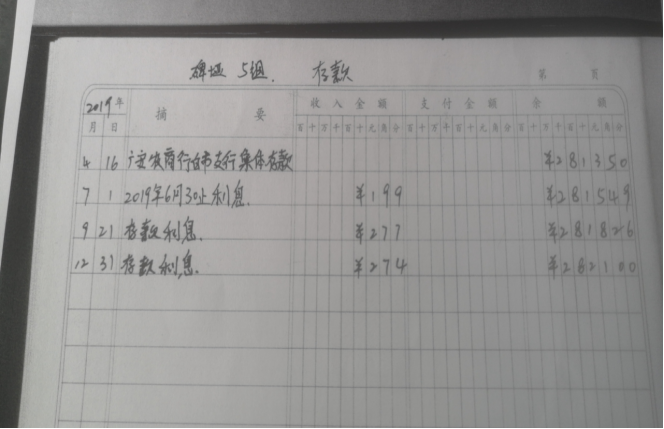 碑垭 5组. 存款
第 页
2019年 摘 要 收入金额 支付金额 余额
月 日 百十万千百十元角分 百十万千百十元角分 百十万千百十元角分
4 16 广安农商行 支行集体存款 ¥281350
7 1 2019年6月30止利息. ¥199 ¥281549
9 21 存款利息. ¥277 ¥281826
12 31 存款利息. ¥274 ¥282100